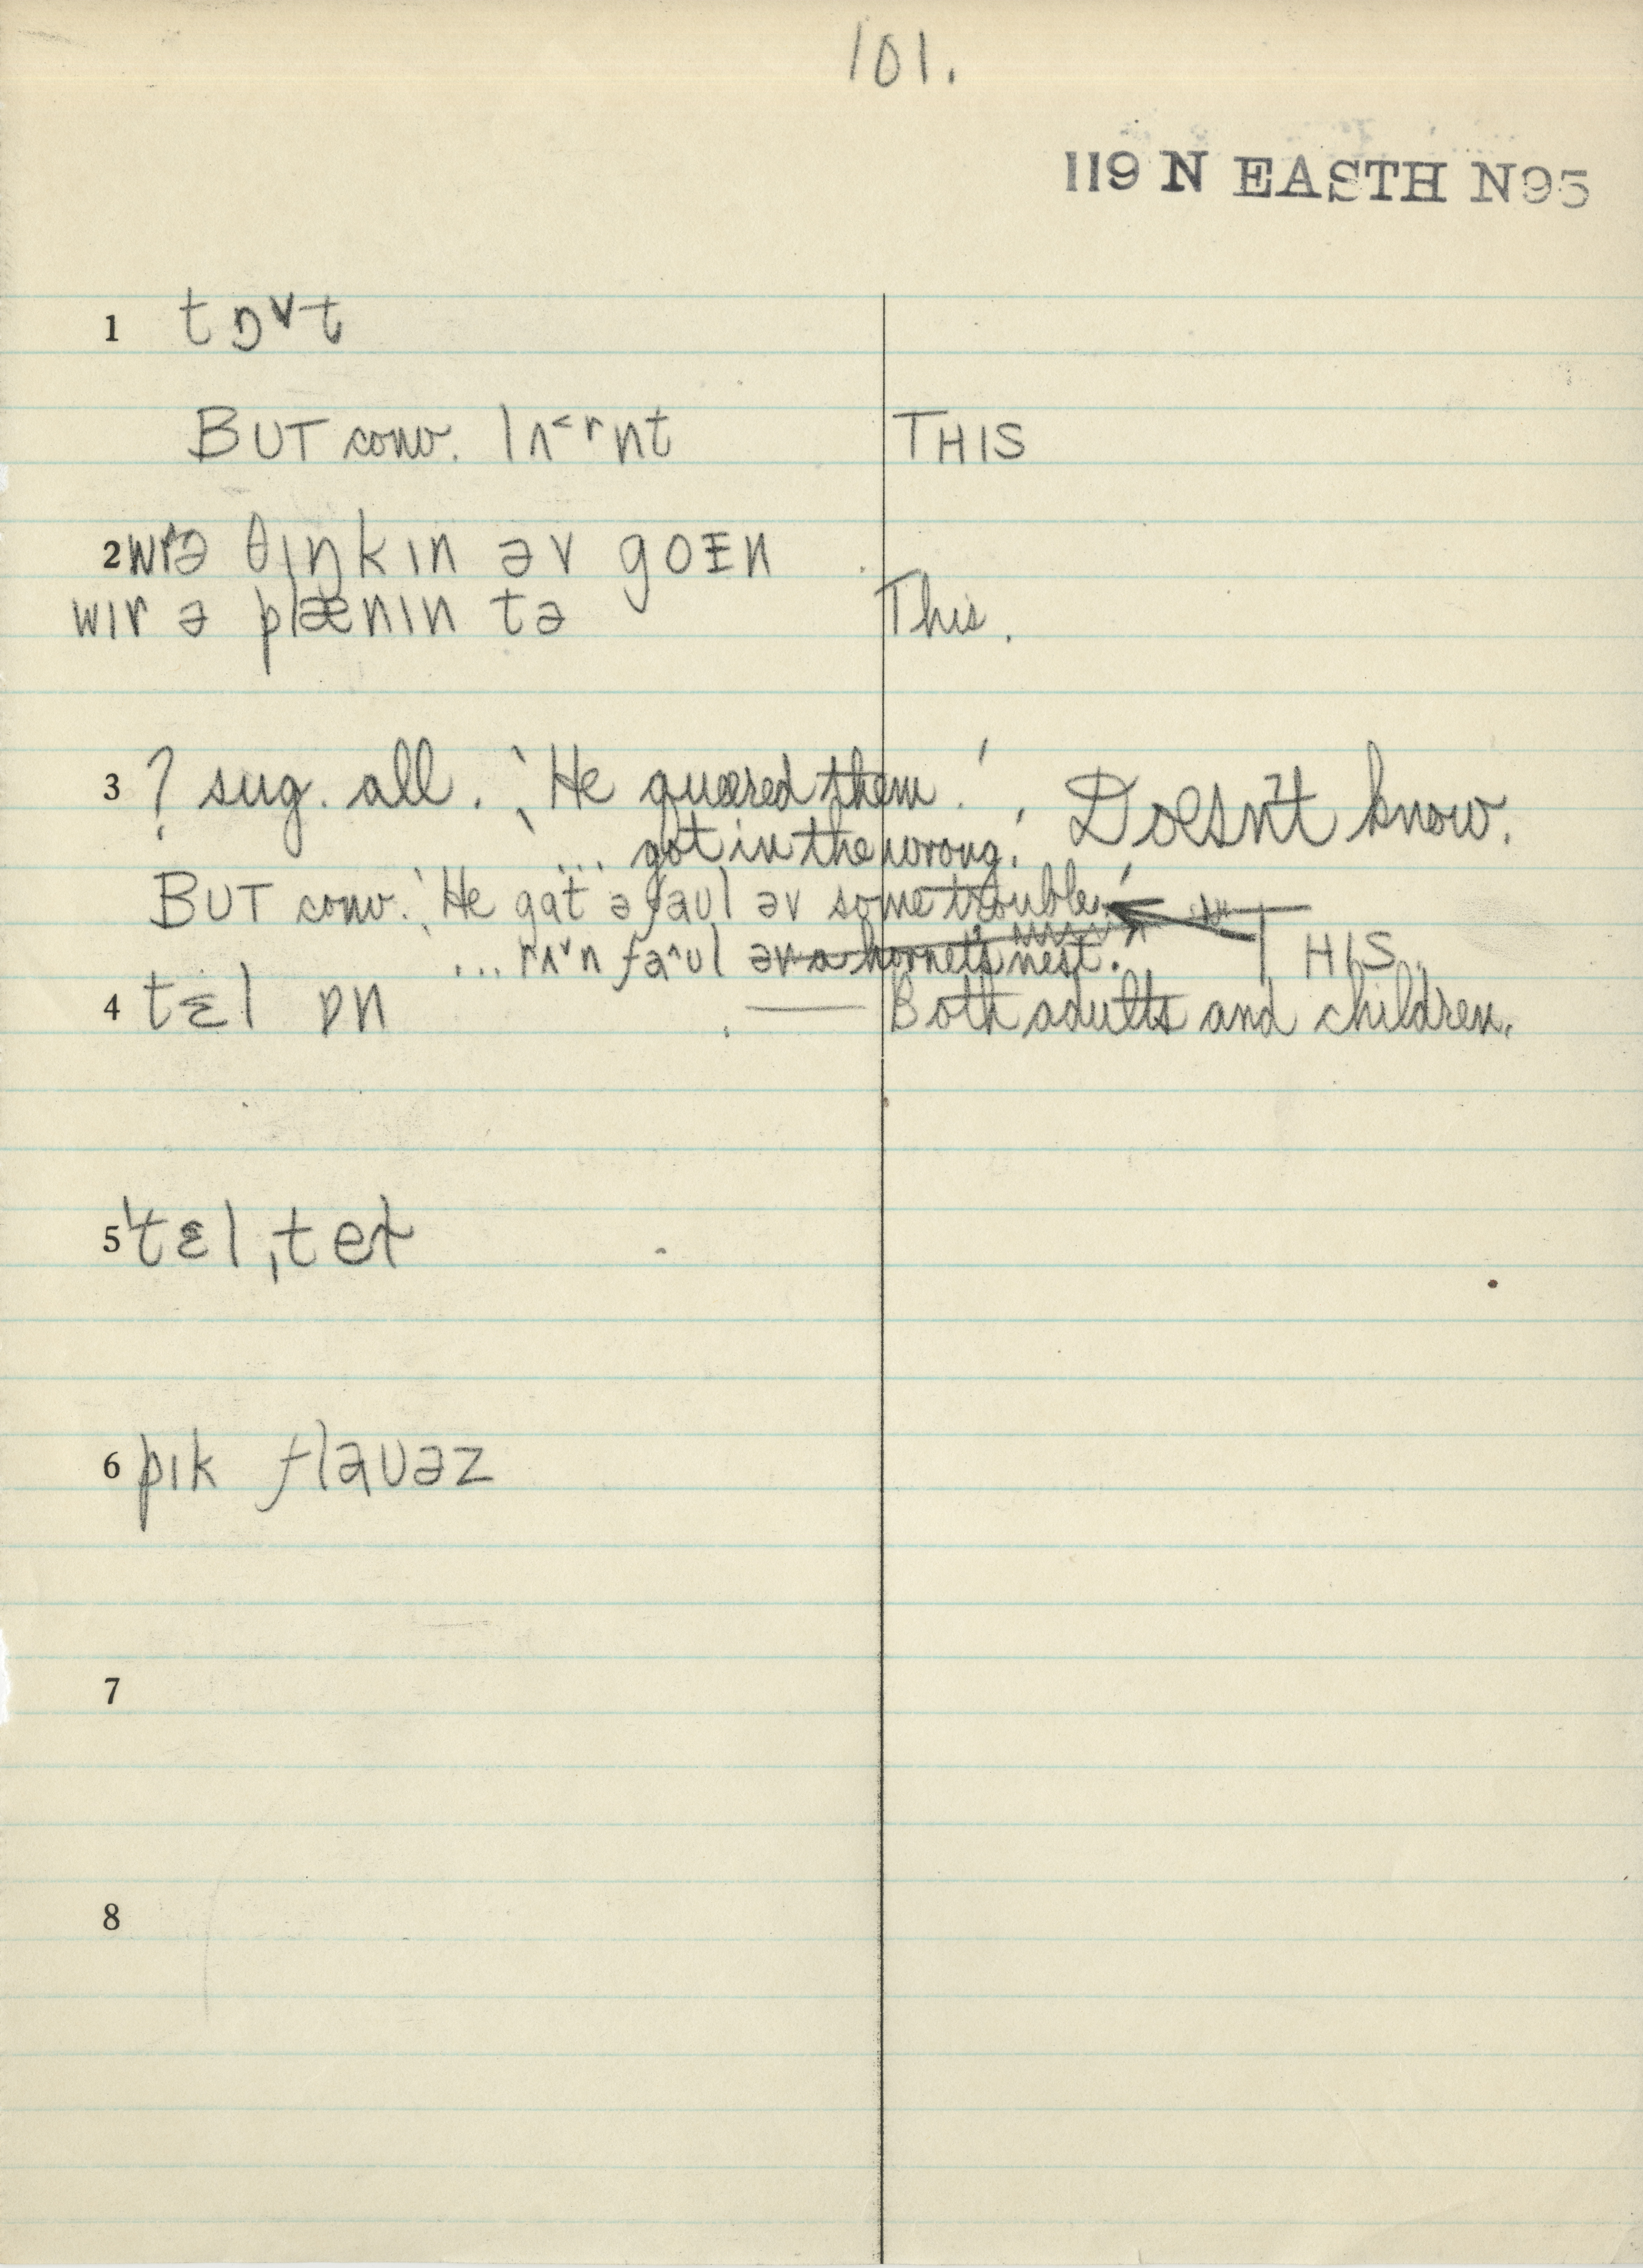 101.
119 N EASTH N95
1 tɒ˅t
BUT conv. lʌ˂rnt THIS
2 wɪrə θɪŋkɪn əv goɪn
wɪr ə plænɪn tə This.
3 ? sug. all. 'He queered them.' Doesn't know.
'... got in the wrong.'
BUT conv. 'He gɑt ə faʊl əv some trouble.' THIS.
... rʌ˅n fa˄ʊl əv a hornet's nest.
4 tɛl ɒn — Both adults and children.
5 'tɛl ˌtet
6 pɪk flaʊəz
7
8